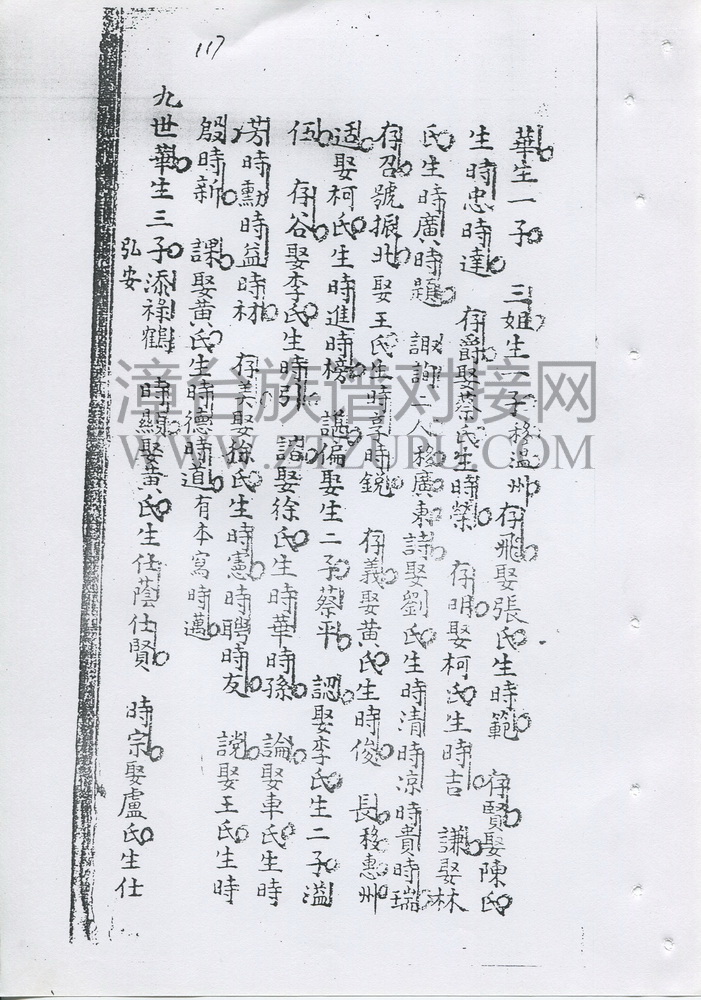 117
華生一子 三姐生一子移溫州 存飛娶張氏生時範 存賢娶陳氏
生時忠時達 存爵娶蔡氏生時榮 存明娶柯氏生時吉 謙娶林
氏生時廣時題 諏詢二人移廣東 詩娶劉氏生時清時凉時貴時瑞
存召號振北娶王氏生時享時銳 存義娶黄氏生時俊 長移惠州
适娶柯氏生時進時榜 諶偏娶生二子蔡平 認娶李氏生二子溢
伍 存谷娶李氏生時引 諮娶徐氏生時華時孫 論娶車氏生時
芳時勳時益時材 存美娶徐氏生時憲時聘時友 説娶王氏生時
殷時新 課娶黄氏生時德時道 有本寫時邁
九世華生三子添祿鶴 時顯娶黄氏生仕蔭仕賢 時宗娶盧氏生仕
弘安
漳台族谱对接网
WWW.ZTZUPU.COM